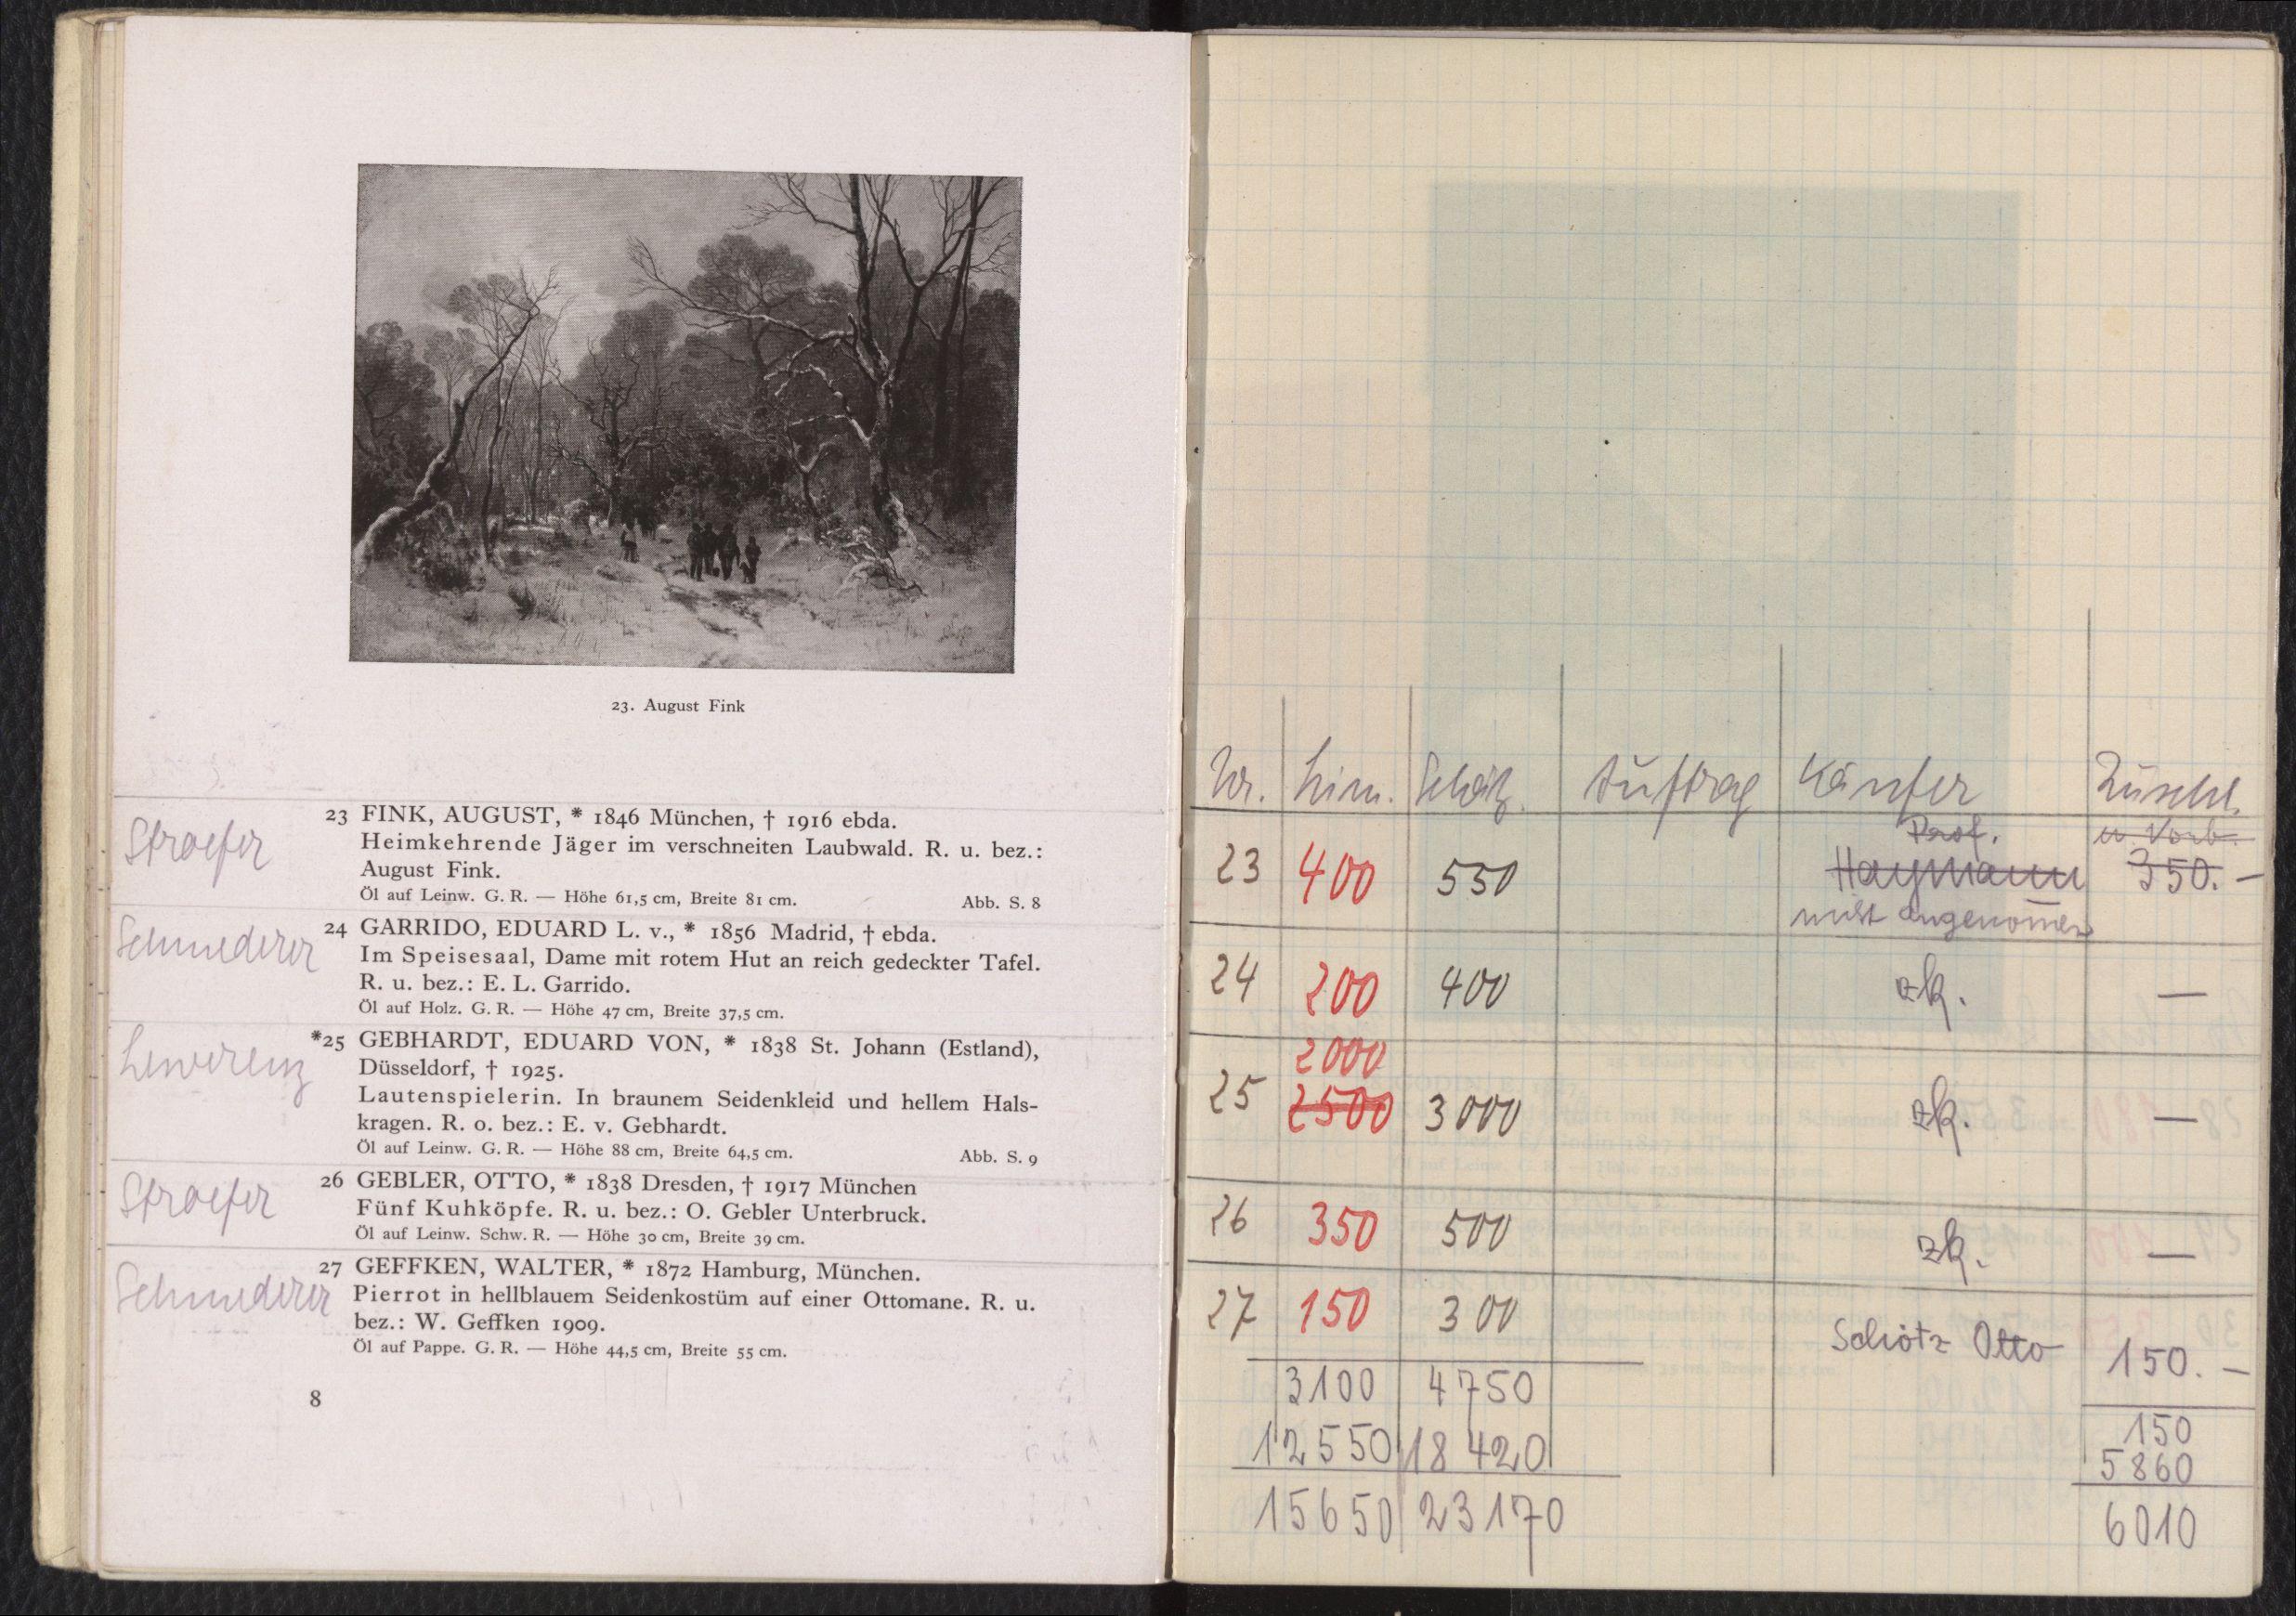 23. August Fink
Stroefer
23 FINK, AUGUST, * 1846 München, † 1916 ebda.
Heimkehrende Jäger im verschneiten Laubwald. R. u. bez.:
August Fink.
Öl auf Leinw. G. R. — Höhe 61,5 cm, Breite 81 cm. Abb. S. 8
Schmederer
24 GARRIDO, EDUARD L. v., * 1856 Madrid, † ebda.
Im Speisesaal, Dame mit rotem Hut an reich gedeckter Tafel.
R. u. bez.: E. L. Garrido.
Öl auf Holz. G. R. — Höhe 47 cm, Breite 37,5 cm.
Lewerenz
*25 GEBHARDT, EDUARD VON, * 1838 St. Johann (Estland),
Düsseldorf, † 1925.
Lautenspielerin. In braunem Seidenkleid und hellem Hals-
kragen. R. o. bez.: E. v. Gebhardt.
Öl auf Leinw. G. R. — Höhe 88 cm, Breite 64,5 cm. Abb. S. 9
Stroefer
26 GEBLER, OTTO, * 1838 Dresden, † 1917 München
Fünf Kuhköpfe. R. u. bez.: O. Gebler Unterbruck.
Öl auf Leinw. Schw. R. — Höhe 30 cm, Breite 39 cm.
Schmederer
27 GEFFKEN, WALTER, * 1872 Hamburg, München.
Pierrot in hellblauem Seidenkostüm auf einer Ottomane. R. u.
bez.: W. Geffken 1909.
Öl auf Pappe. G. R. — Höhe 44,5 cm, Breite 55 cm.
8
Nr. Lim. Schätz. Auftrag Käufer Zuschl.
Prof. u. Vorb.
23 400 550 Haymann 350.—
nicht angenommen
24 200 400 zk. —
2000
25 2500 3000 zk. —
26 350 500 zk. —
27 150 300 Schötz Otto 150.—
3100 4750 150
12550 18420 5860
15650 23170 6010